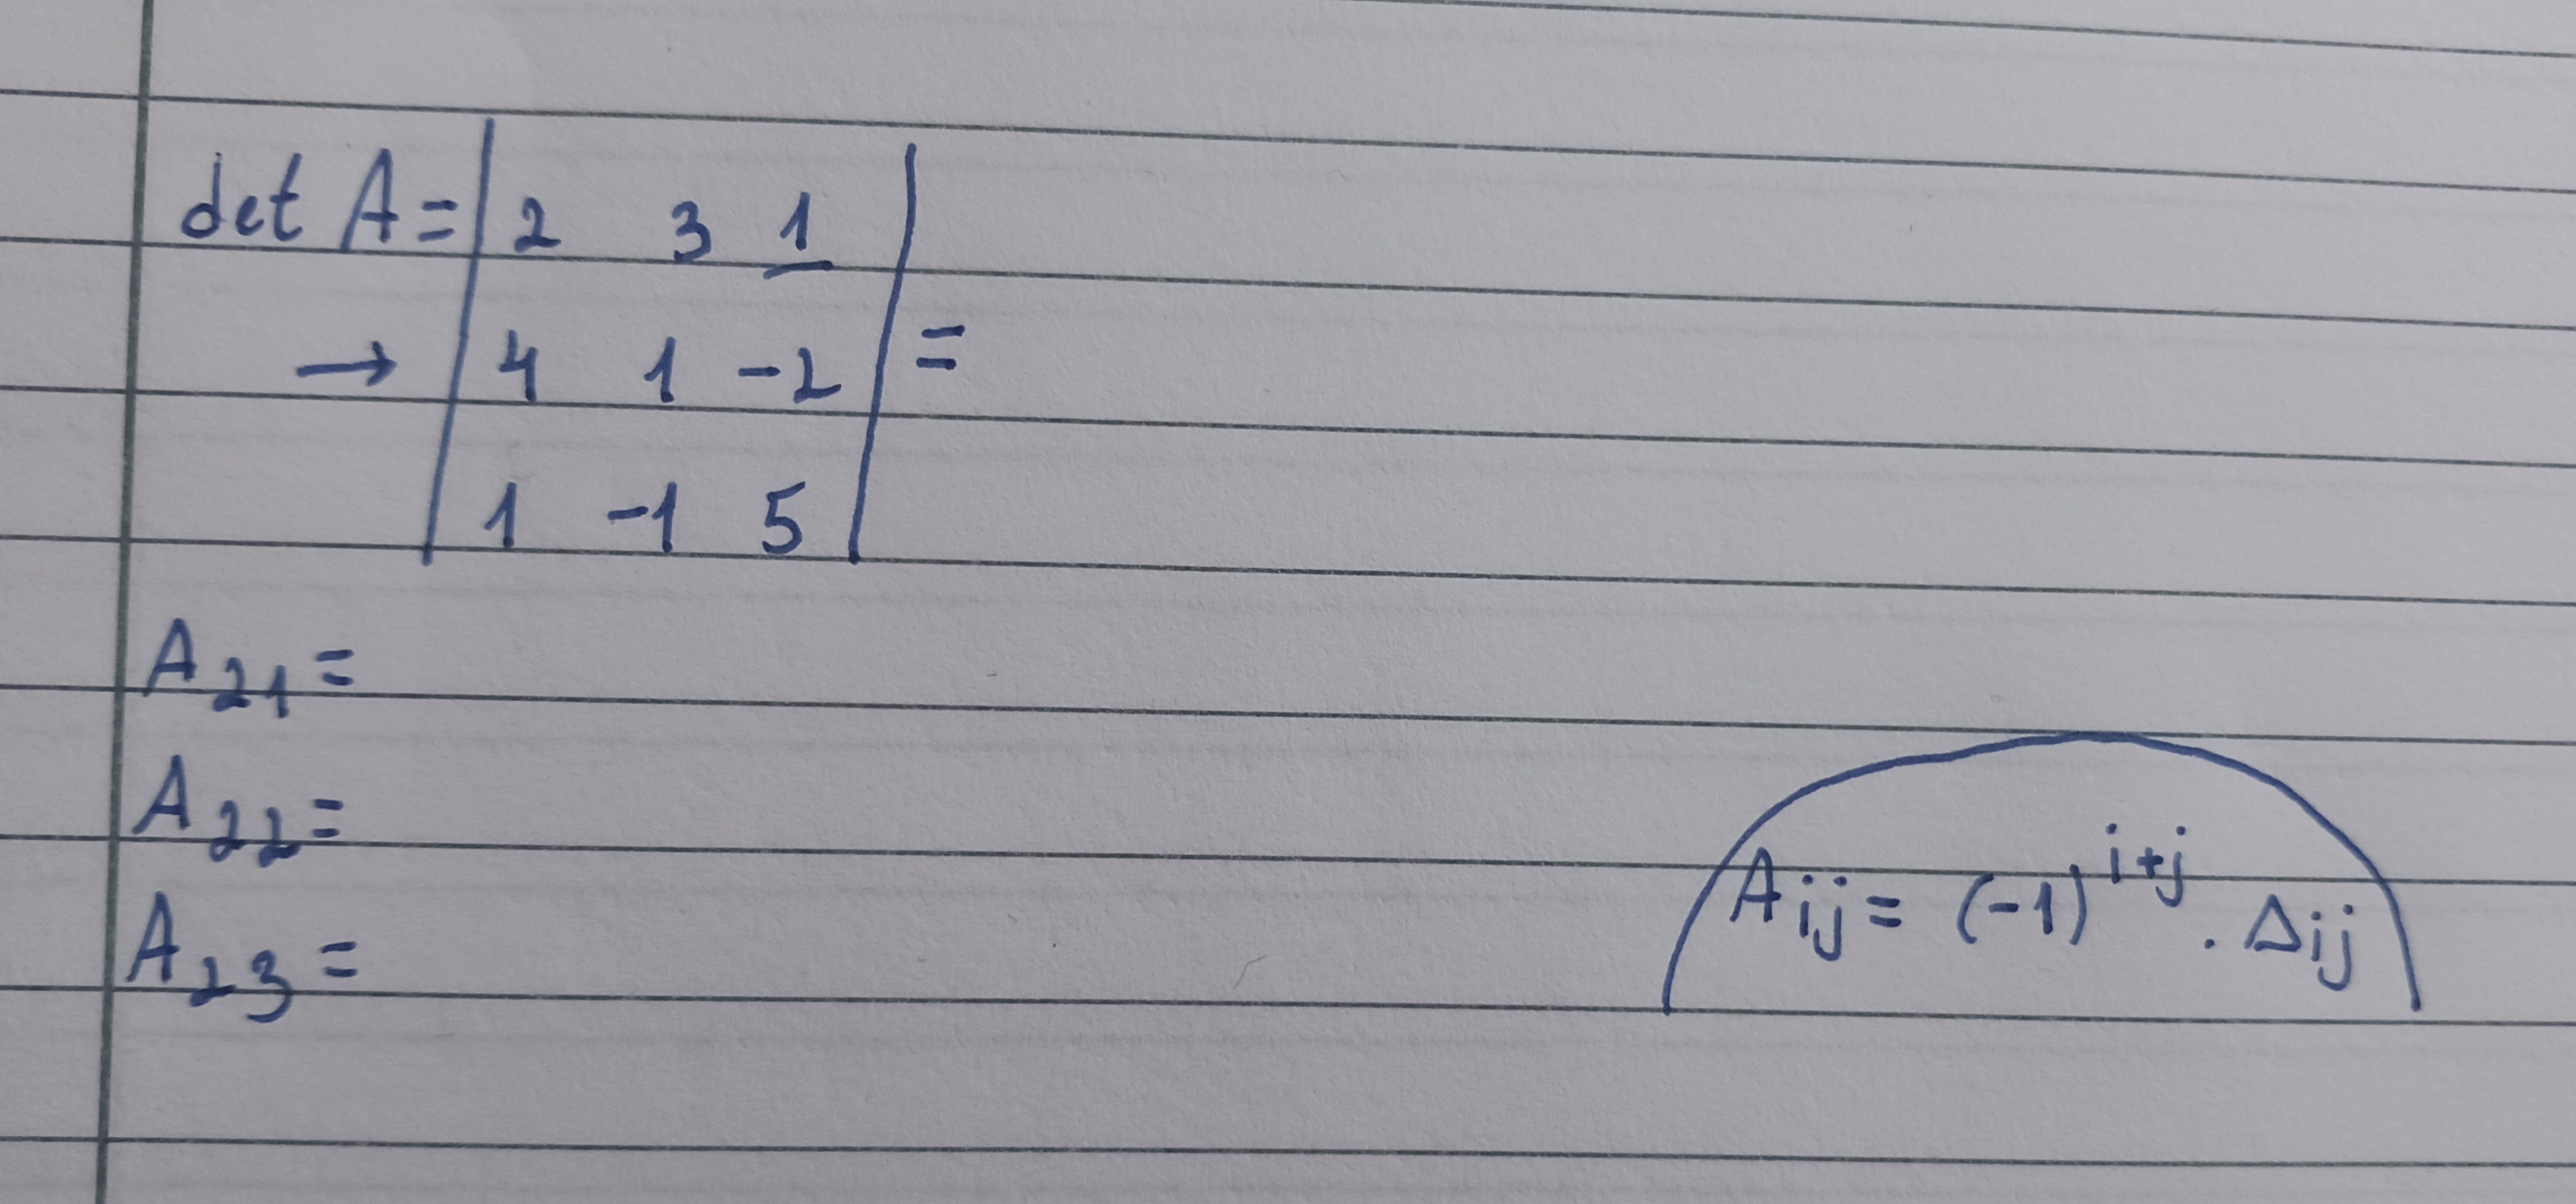 det A = | 2 3 1 |
→ | 4 1 -2 | =
| 1 -1 5 |
A₂₁ =
A₂₂ =
A₂₃ =
Aᵢⱼ = (-1)ⁱ⁺ʲ . Δᵢⱼ